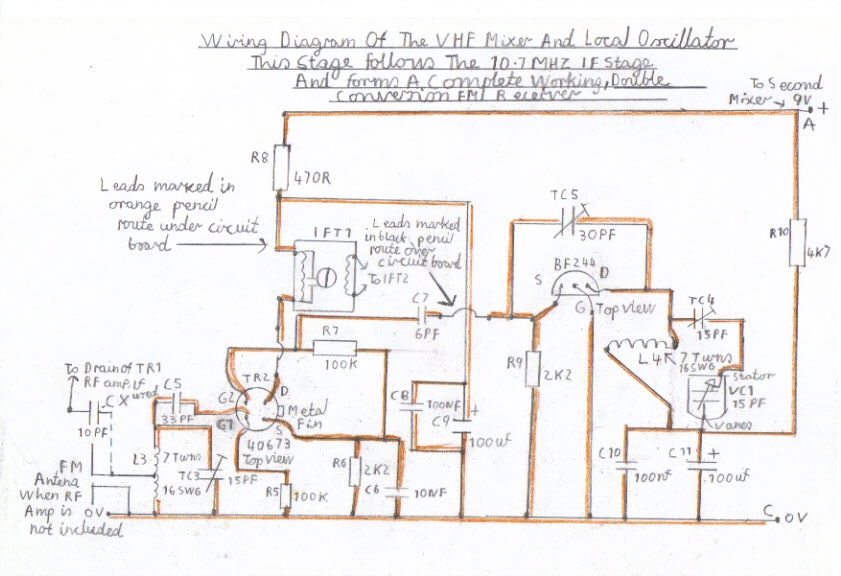 Wiring Diagram Of The VHF Mixer And Local Oscillator
This Stage follows The 10.7 MHZ IF Stage
And forms A Complete Working, Double
Conversion FM Receiver
To Second
Mixer → 9V +
A
R8
470R
Leads marked in
orange pencil
route under circuit
board
IFT1
Leads marked
in black pencil
route over
circuit board
To IFT2
TC5
30PF
BF244
S
D
G
Top view
R10
4K7
TC4
15PF
C7
6PF
R7
100K
L4
7 Turns
16SWG
Stator
VC1
15 PF
vanes
R9
2K2
To Drain of TR1
RF amp. if
used
CX
10PF
C5
33PF
TR2
G2
D
G1
S
Metal
Fin
40673
Top view
C8
100NF
C9
+
100uf
L3
7 Turns
16SWG
TC3
15PF
R5
100K
R6
2K2
C6
10NF
C10
100nf
C11
+
100uf
FM
Antena
When RF
Amp is
not included
0V
C
0V